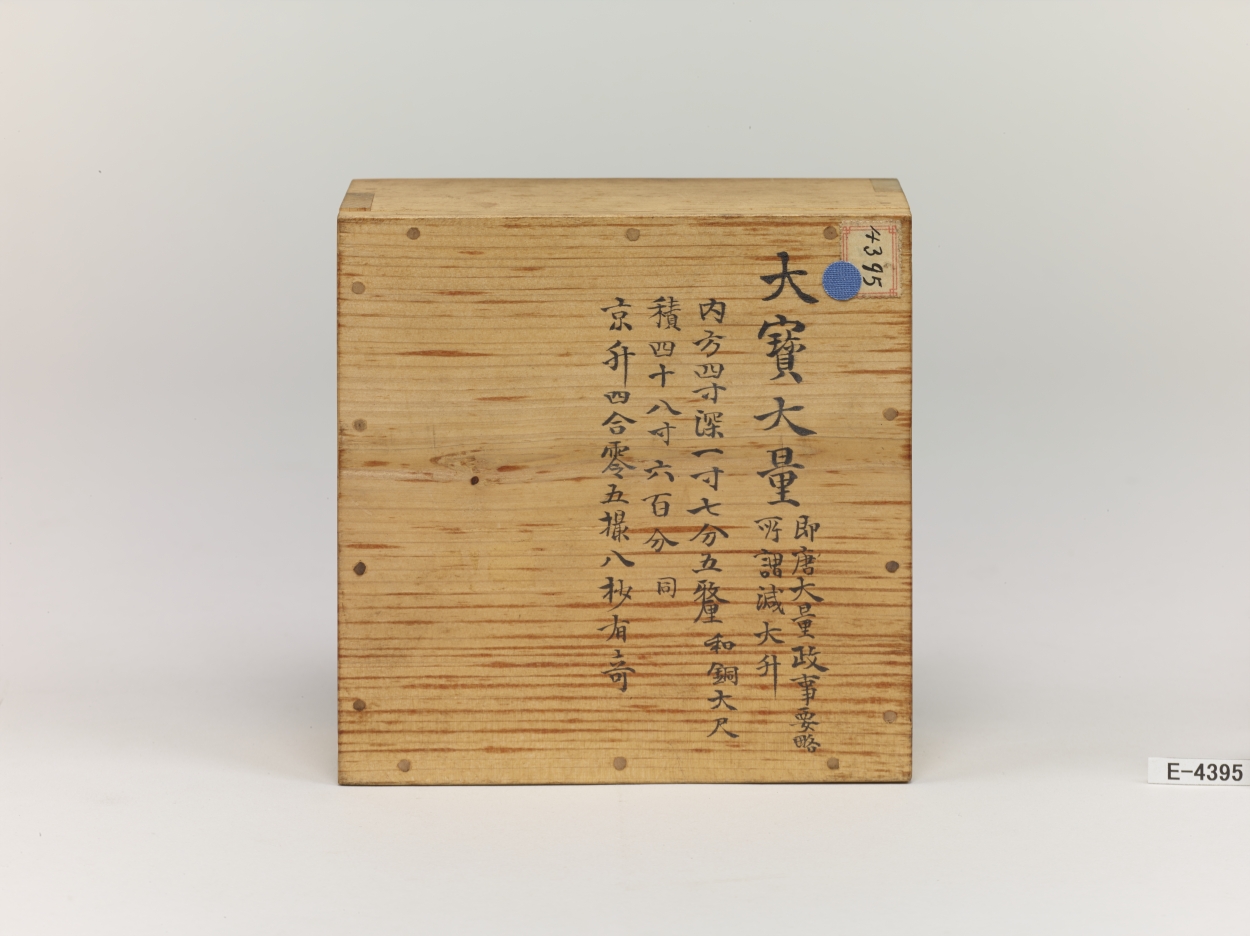 4395
大寶大量
即唐大量政事要略
所謂減大升
内方四寸深一寸七分五釐 和銅大尺
積四十八寸六百分 同
京升四合零五撮八抄有奇
E-4395